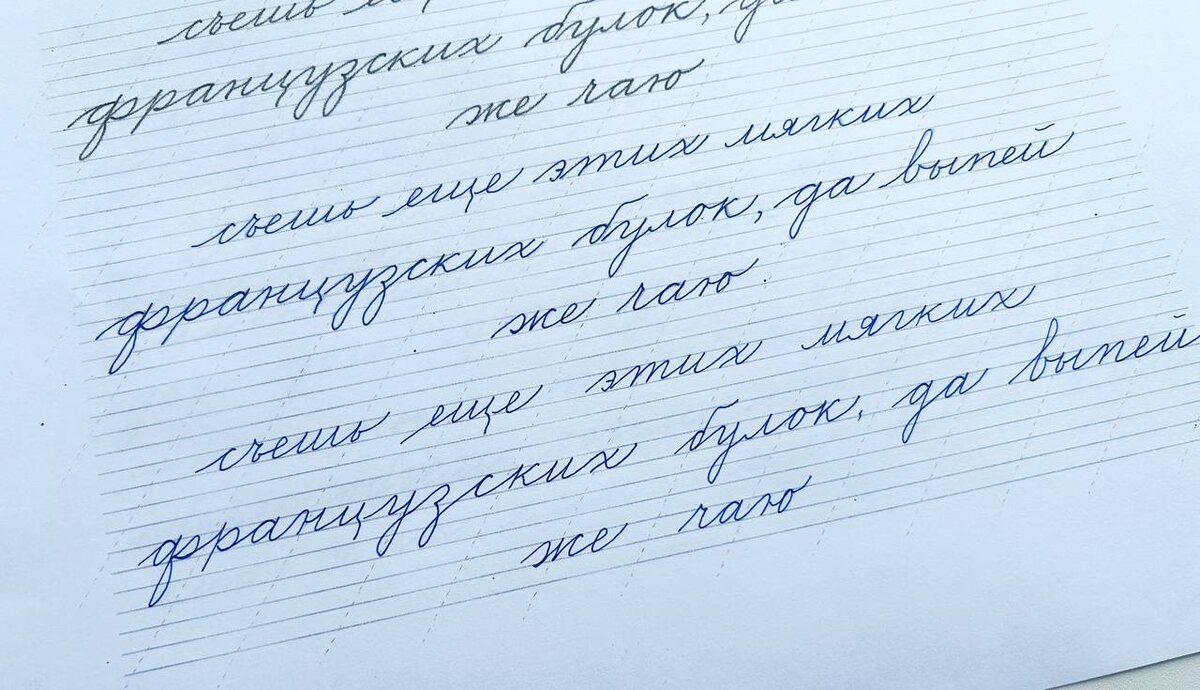 съешь
французских булок, да
же чаю
съешь еще этих мягких
французских булок, да выпей
же чаю
съешь еще этих мягких
французских булок, да выпей
же чаю